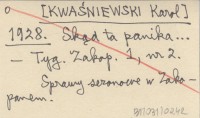 [KWAŚNIEWSKI Karol]
1928. Skąd ta panika...
– Tyg. Zakop. 1, nr 2.
Sprawy sezonowe w Zako-
panem.